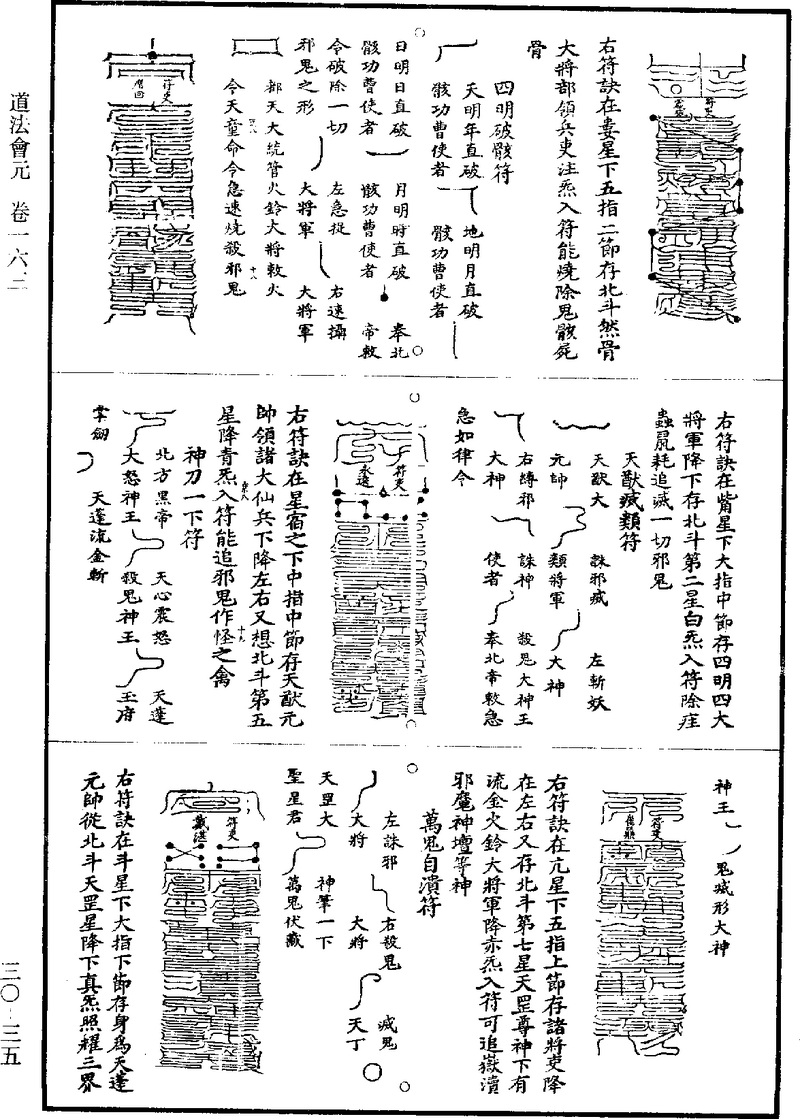 道法會元　卷一六二
三〇-三五
符吏
右符訣在婁星下五指二節存北斗然骨
大將部領兵吏注炁入符能燒除鬼骸屍
骨
四明破骸符
天明年直破
骸功曹使者
地明月直破
骸功曹使者
日明日直破
骸功曹使者
月明時直破
骸功曹使者
奉北
帝敕
令破除一切
邪鬼之形
左急捉
大將軍
右速攝
大將軍
都天大統管火鈴大將敕火
今天童命令急速燒殺邪鬼
符吏
右符訣在觜星下大指中節存四明四大
將軍降下存北斗第二星白炁入符除疰
蟲鼠耗追滅一切邪鬼
天猷滅類符
天猷大
元帥
誅邪滅
類將軍
左斬妖
大神
右縛邪
大神
誅神
使者
殺鬼大神王
奉北帝敕急
急如律令
符吏
右符訣在星宿之下中指中節存天猷元
帥領諸大仙兵下降左右又想北斗第五
星降青炁入符能追邪鬼作怪之禽
神刀一下符
北方黑帝
大怒神王
天心震怒
殺鬼神王
天蓬
玉府
掌劒
天蓬流金斬
神王
鬼滅形大神
符吏
右符訣在亢星下五指上節存諸將吏降
在左右又存北斗第七星天罡尊神下有
流金火鈴大將軍降赤炁入符可追嶽瀆
邪魔神壇等神
萬鬼自潰符
左誅邪
大將
右殺鬼
大將
滅鬼
天丁
天罡大
聖星君
神筆一下
萬鬼伏藏
符吏
右符訣在斗星下大指下節存身爲天蓬
元帥從北斗天罡星降下真炁照耀三界